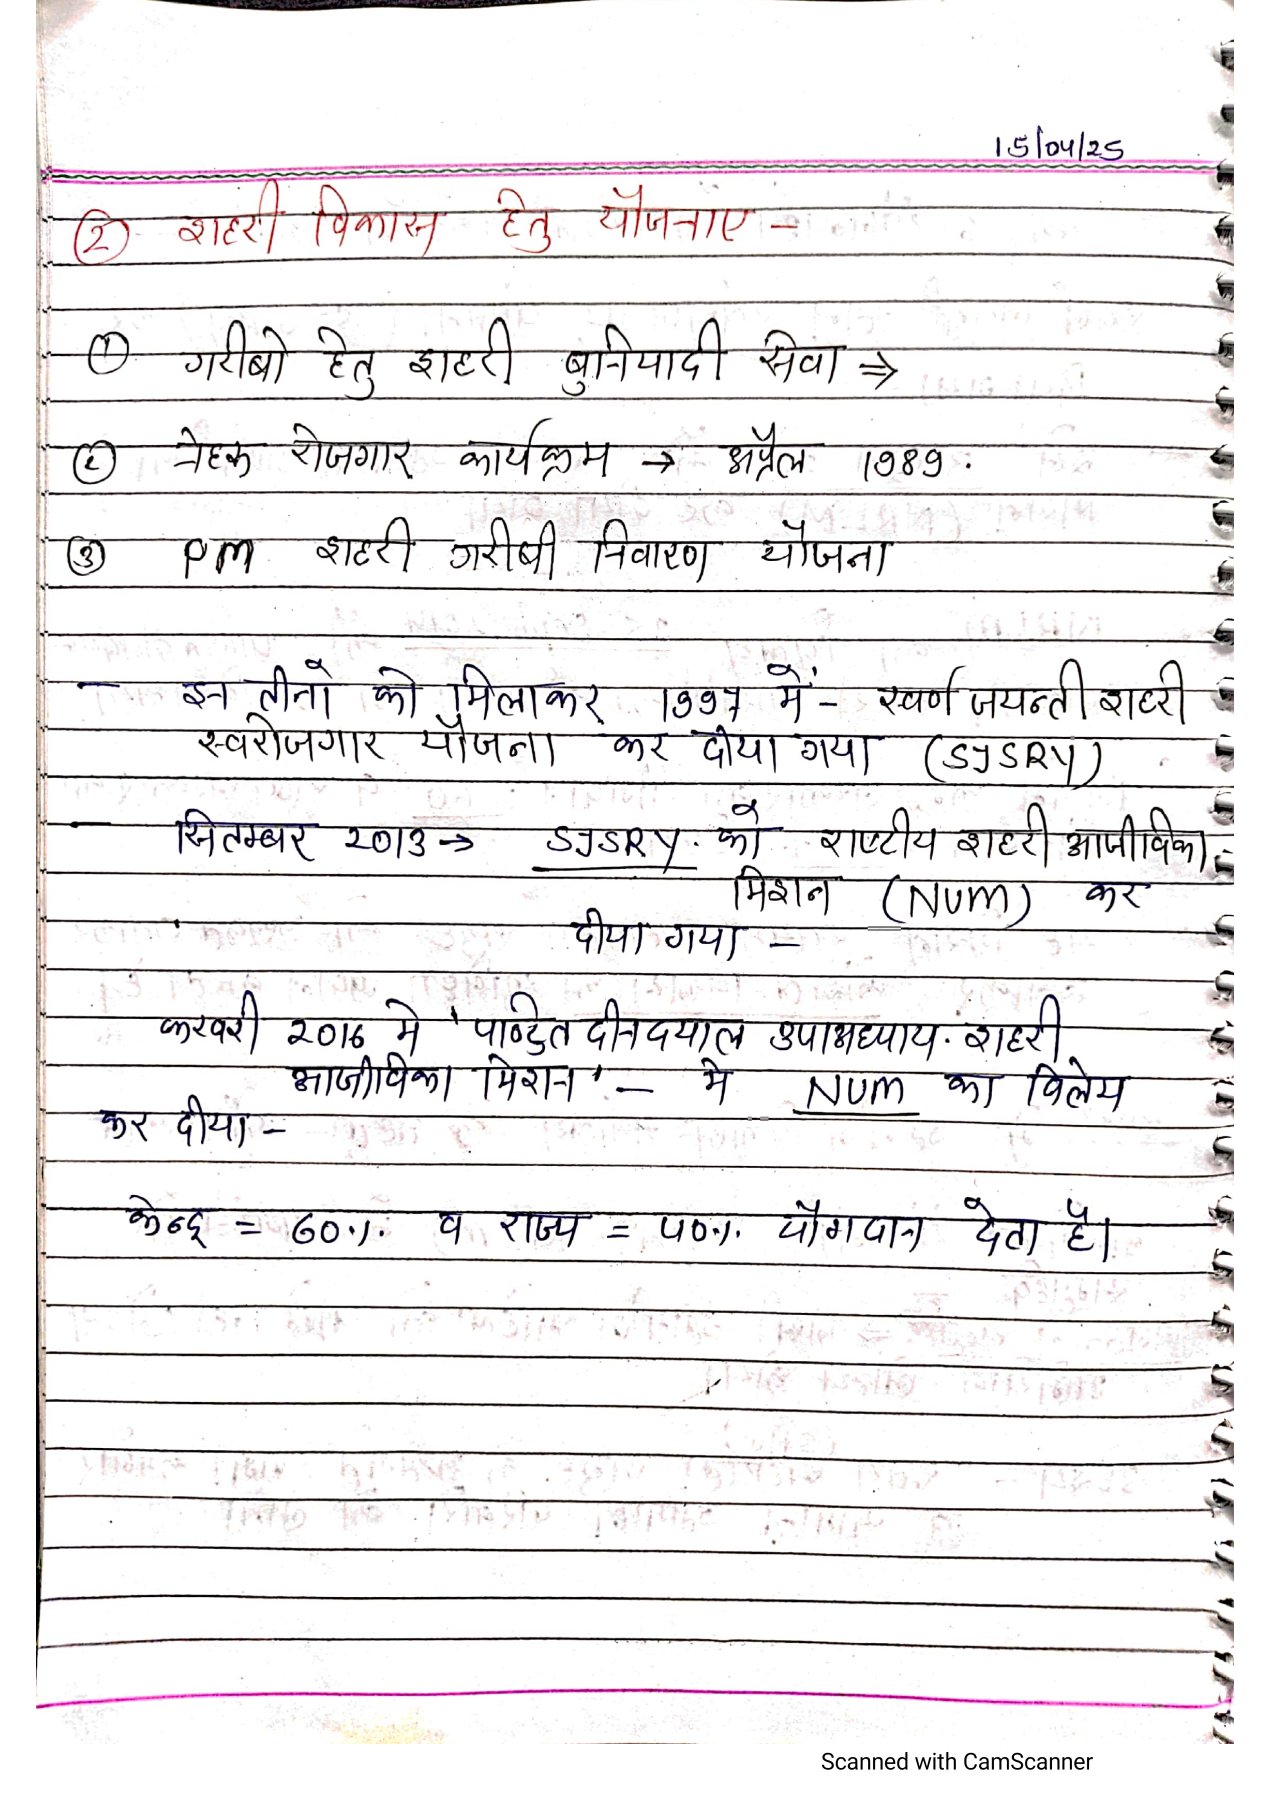 15/04/25
② शहरी विकास हेतु यौजनाए –
① गरीबो हेतु शहरी बुनियादी सेवा ⇒
② नेहरू रोजगार कार्यक्रम → अप्रैल 1989.
③ PM शहरी गरीबी निवारण यौजना
– इन तीनो को मिलाकर 1997 में – स्वर्ण जयन्ती शहरी
स्वरोजगार यौजना कर दीया गया (SJSRY)
– सितम्बर 2013 → SJSRY. को राष्टीय शहरी आजीविका
मिशन (NUM) कर
दीया गया –
फरवरी 2016 मे 'पण्डित दीनदयाल उपाअध्याय. शहरी
आजीविका मिशन' – मे NUM का विलेय
कर दीया –
केन्द्र = 60% व राज्य = 40% यौगदान देता है।
Scanned with CamScanner